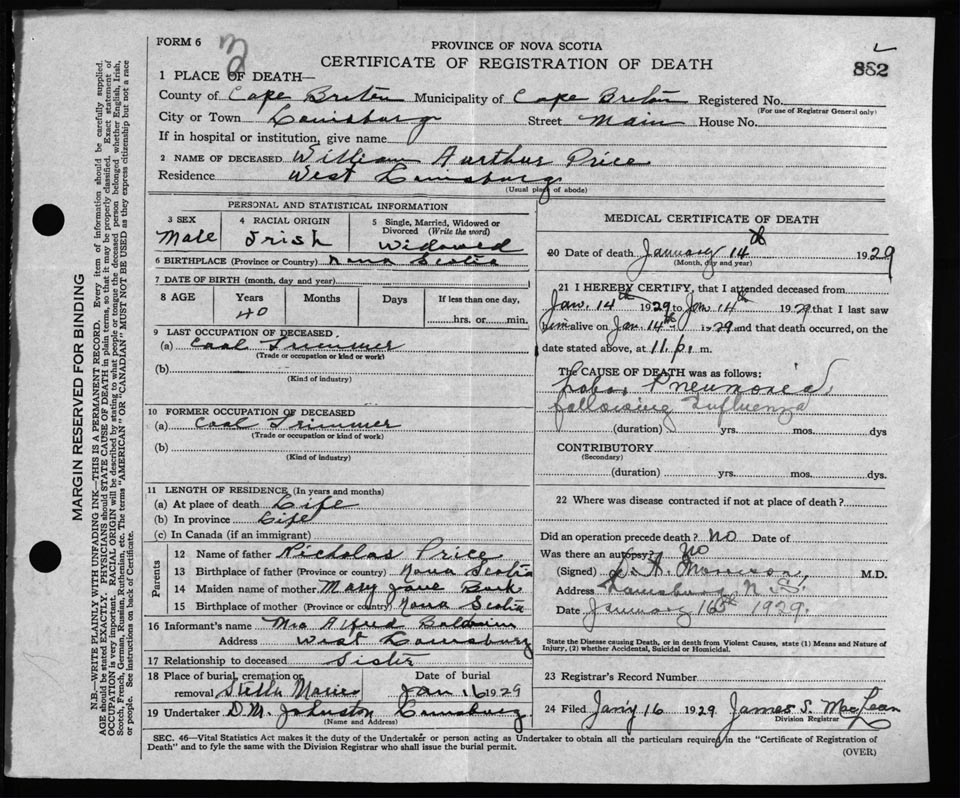 FORM 6
3
PROVINCE OF NOVA SCOTIA
CERTIFICATE OF REGISTRATION OF DEATH
852
1 PLACE OF DEATH—
County of Cape Breton Municipality of Cape Breton Registered No.
(For use of Registrar General only)
City or Town Louisburg Street Main House No.
If in hospital or institution, give name
2 NAME OF DECEASED William Aurthur Price
Residence West Louisburg
(Usual place of abode)
PERSONAL AND STATISTICAL INFORMATION
3 SEX Male
4 RACIAL ORIGIN Irish
5 Single, Married, Widowed or Divorced (Write the word) Widowed
6 BIRTHPLACE (Province or Country) Nova Scotia
7 DATE OF BIRTH (month, day and year)
8 AGE Years Months Days If less than one day,
40 hrs. or min.
9 LAST OCCUPATION OF DECEASED
(a) Coal Trimmer
(Trade or occupation or kind or work)
(b)
(Kind of industry)
10 FORMER OCCUPATION OF DECEASED
(a) Coal Trimmer
(Trade or occupation or kind of work)
(b)
(Kind of industry)
11 LENGTH OF RESIDENCE (In years and months)
(a) At place of death Life
(b) In province Life
(c) In Canada (if an immigrant)
Parents
12 Name of father Nicholas Price
13 Birthplace of father (Province or country) Nova Scotia
14 Maiden name of mother Mary Jane
15 Birthplace of mother (Province or country) Nova Scotia
16 Informant's name Mrs Alfred Baldwin
Address West Louisburg
17 Relationship to deceased Sister
18 Place of burial, cremation or removal Stella Maries
Date of burial Jan 16 1929
19 Undertaker D.M. Johnston Louisburg
(Name and Address)
MEDICAL CERTIFICATE OF DEATH
20 Date of death January 14th 1929
(Month, day and year)
21 I HEREBY CERTIFY, that I attended deceased from
Jan. 14th 1929 to Jan 14th 1929 that I last saw
him alive on Jan. 14th 1929 and that death occurred, on the
date stated above, at 11. p. m.
The CAUSE OF DEATH was as follows:
Lobar Pneumonia
following Influenza
(duration) yrs. mos. dys
CONTRIBUTORY
(Secondary)
(duration) yrs. mos. dys.
22 Where was disease contracted if not at place of death?
Did an operation precede death? No Date of
Was there an autopsy? No
(Signed) Morrison M.D.
Address Louisburg N.S.
Date January 16th 1929.
State the Disease causing Death, or in death from Violent Causes, state (1) Means and Nature of
Injury, (2) whether Accidental, Suicidal or Homicidal.
23 Registrar's Record Number
24 Filed Jany 16 1929 James S. MacLean
Division Registrar
SEC. 46—Vital Statistics Act makes it the duty of the Undertaker or person acting as Undertaker to obtain all the particulars required in the "Certificate of Registration of
Death" and to fyle the same with the Division Registrar who shall issue the burial permit.
(OVER)
MARGIN RESERVED FOR BINDING
N.B.—WRITE PLAINLY WITH UNFADING INK—THIS IS A PERMANENT RECORD. Every item of information should be carefully supplied.
AGE should be stated EXACTLY. PHYSICIANS should STATE CAUSE OF DEATH in plain terms, so that it may be properly classified. Exact statement of
OCCUPATION is very important. RACIAL ORIGIN will be described by stating to what people or tongue the deceased person belonged whether English, Irish,
Scotch, French, German, Russian, Ruthenian, etc. The terms "AMERICAN" OR "CANADIAN" MUST NOT BE USED as they express citizenship but not a race
or people. See instructions on back of Certificate.